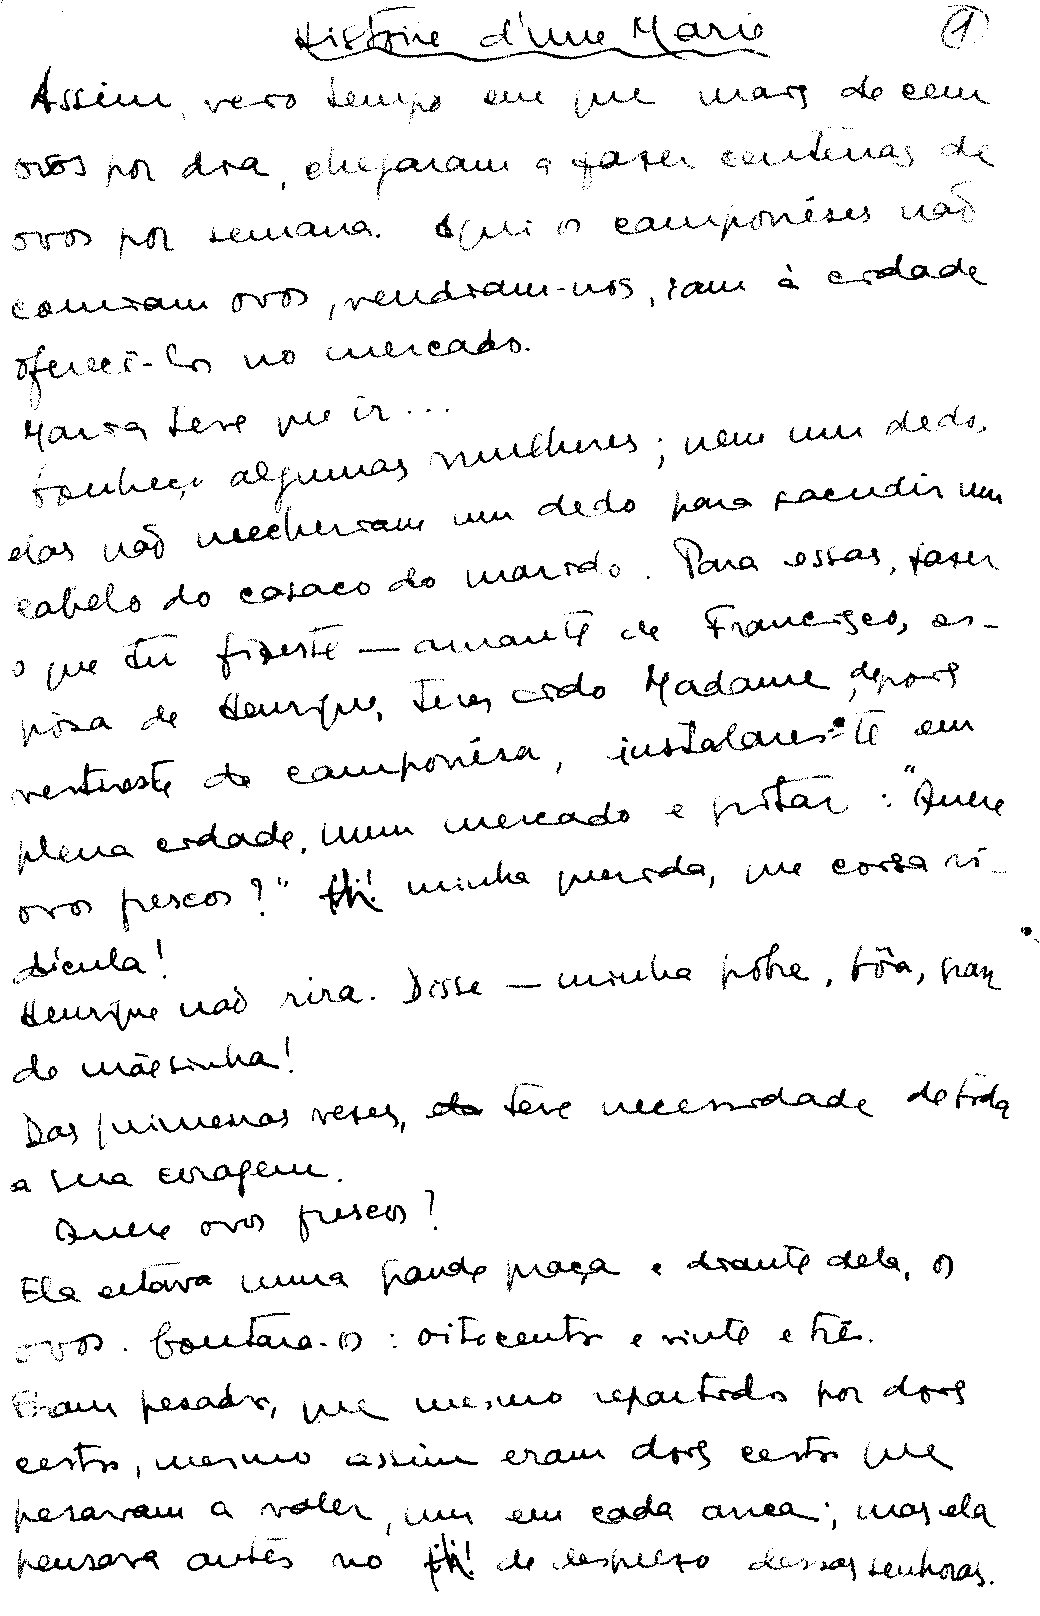 Histoire d'une Marie
1
Assim, veio tempo em que mais de cem
ovos por dia, chegaram a fazer centenas de
ovos por semana. Aqui os camponêses não
comiam ovos, vendiam-nos, iam à cidade
oferecê-los no mercado.
Maria teve que ir...
Conheço algumas mulheres; nem um dedo,
elas não mecheriam um dedo para sacudir um
cabelo do casaco do marido. Para essas, fazer
o que tu fizeste — amante de Francisco, es-
pôsa de Henrique, teres sido Madame, depois
vestires-te de camponêsa, instalares-te em
plena cidade, num mercado e gritar: "Quere
ovos frescos?" fhi! minha querida, que coisa ri-
dícula!
Henrique não rira. Disse — minha pobre, bôa, gran
de mãesinha!
Das primeiras vezes, teve necessidade de tôda
a sua coragem.
Quere ovos frescos?
Ela estava numa grande praça e diante dela, os
ovos. Contara-os: oitocentos e vinte e três.
Eram pesados, que mesmo repartidos por dois
cestos, mesmo assim eram dois cestos que
pesavam a valer, um em cada anca; mas ela
pensava antes no fhi! de desprezo dessas senhoras.